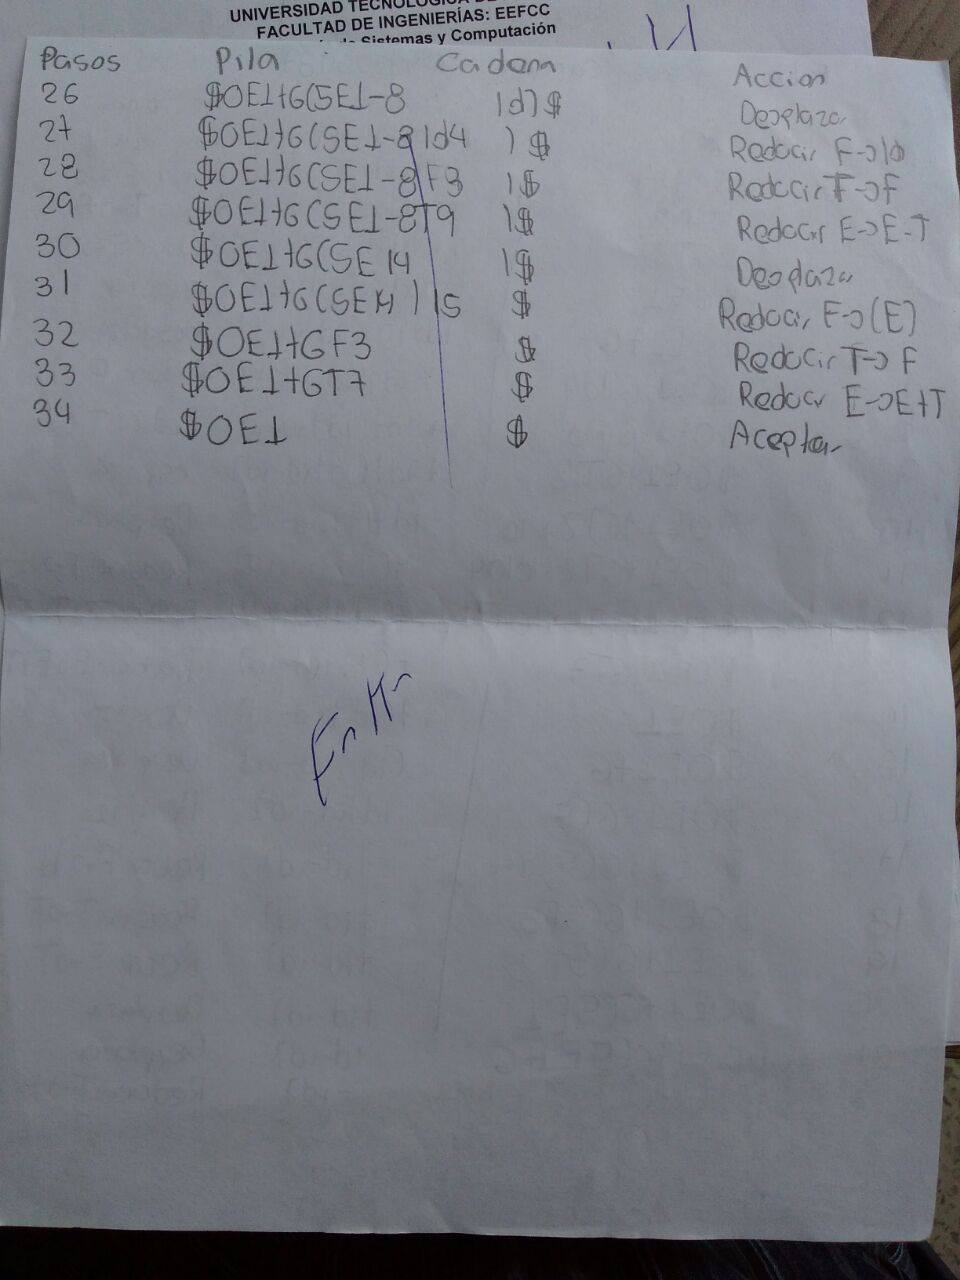 UNIVERSIDAD TECNOLÓGICA DE
FACULTAD DE INGENIERÍAS: EEFCC
de Sistemas y Computación
Pasos Pila Cadena Accion
26 $0E1+6(5E1-8 Id)$ Desplazar
27 $0E1+6(5E1-8Id4 )$ Reducir F->Id
28 $0E1+6(5E1-8F3 )$ Reducir T->F
29 $0E1+6(5E1-8T9 )$ Reducir E->E-T
30 $0E1+6(5E14 )$ Desplazar
31 $0E1+6(5E14)15 $ Reducir F->(E)
32 $0E1+6F3 $ Reducir T->F
33 $0E1+6T7 $ Reducir E->E+T
34 $0E1 $ Aceptar